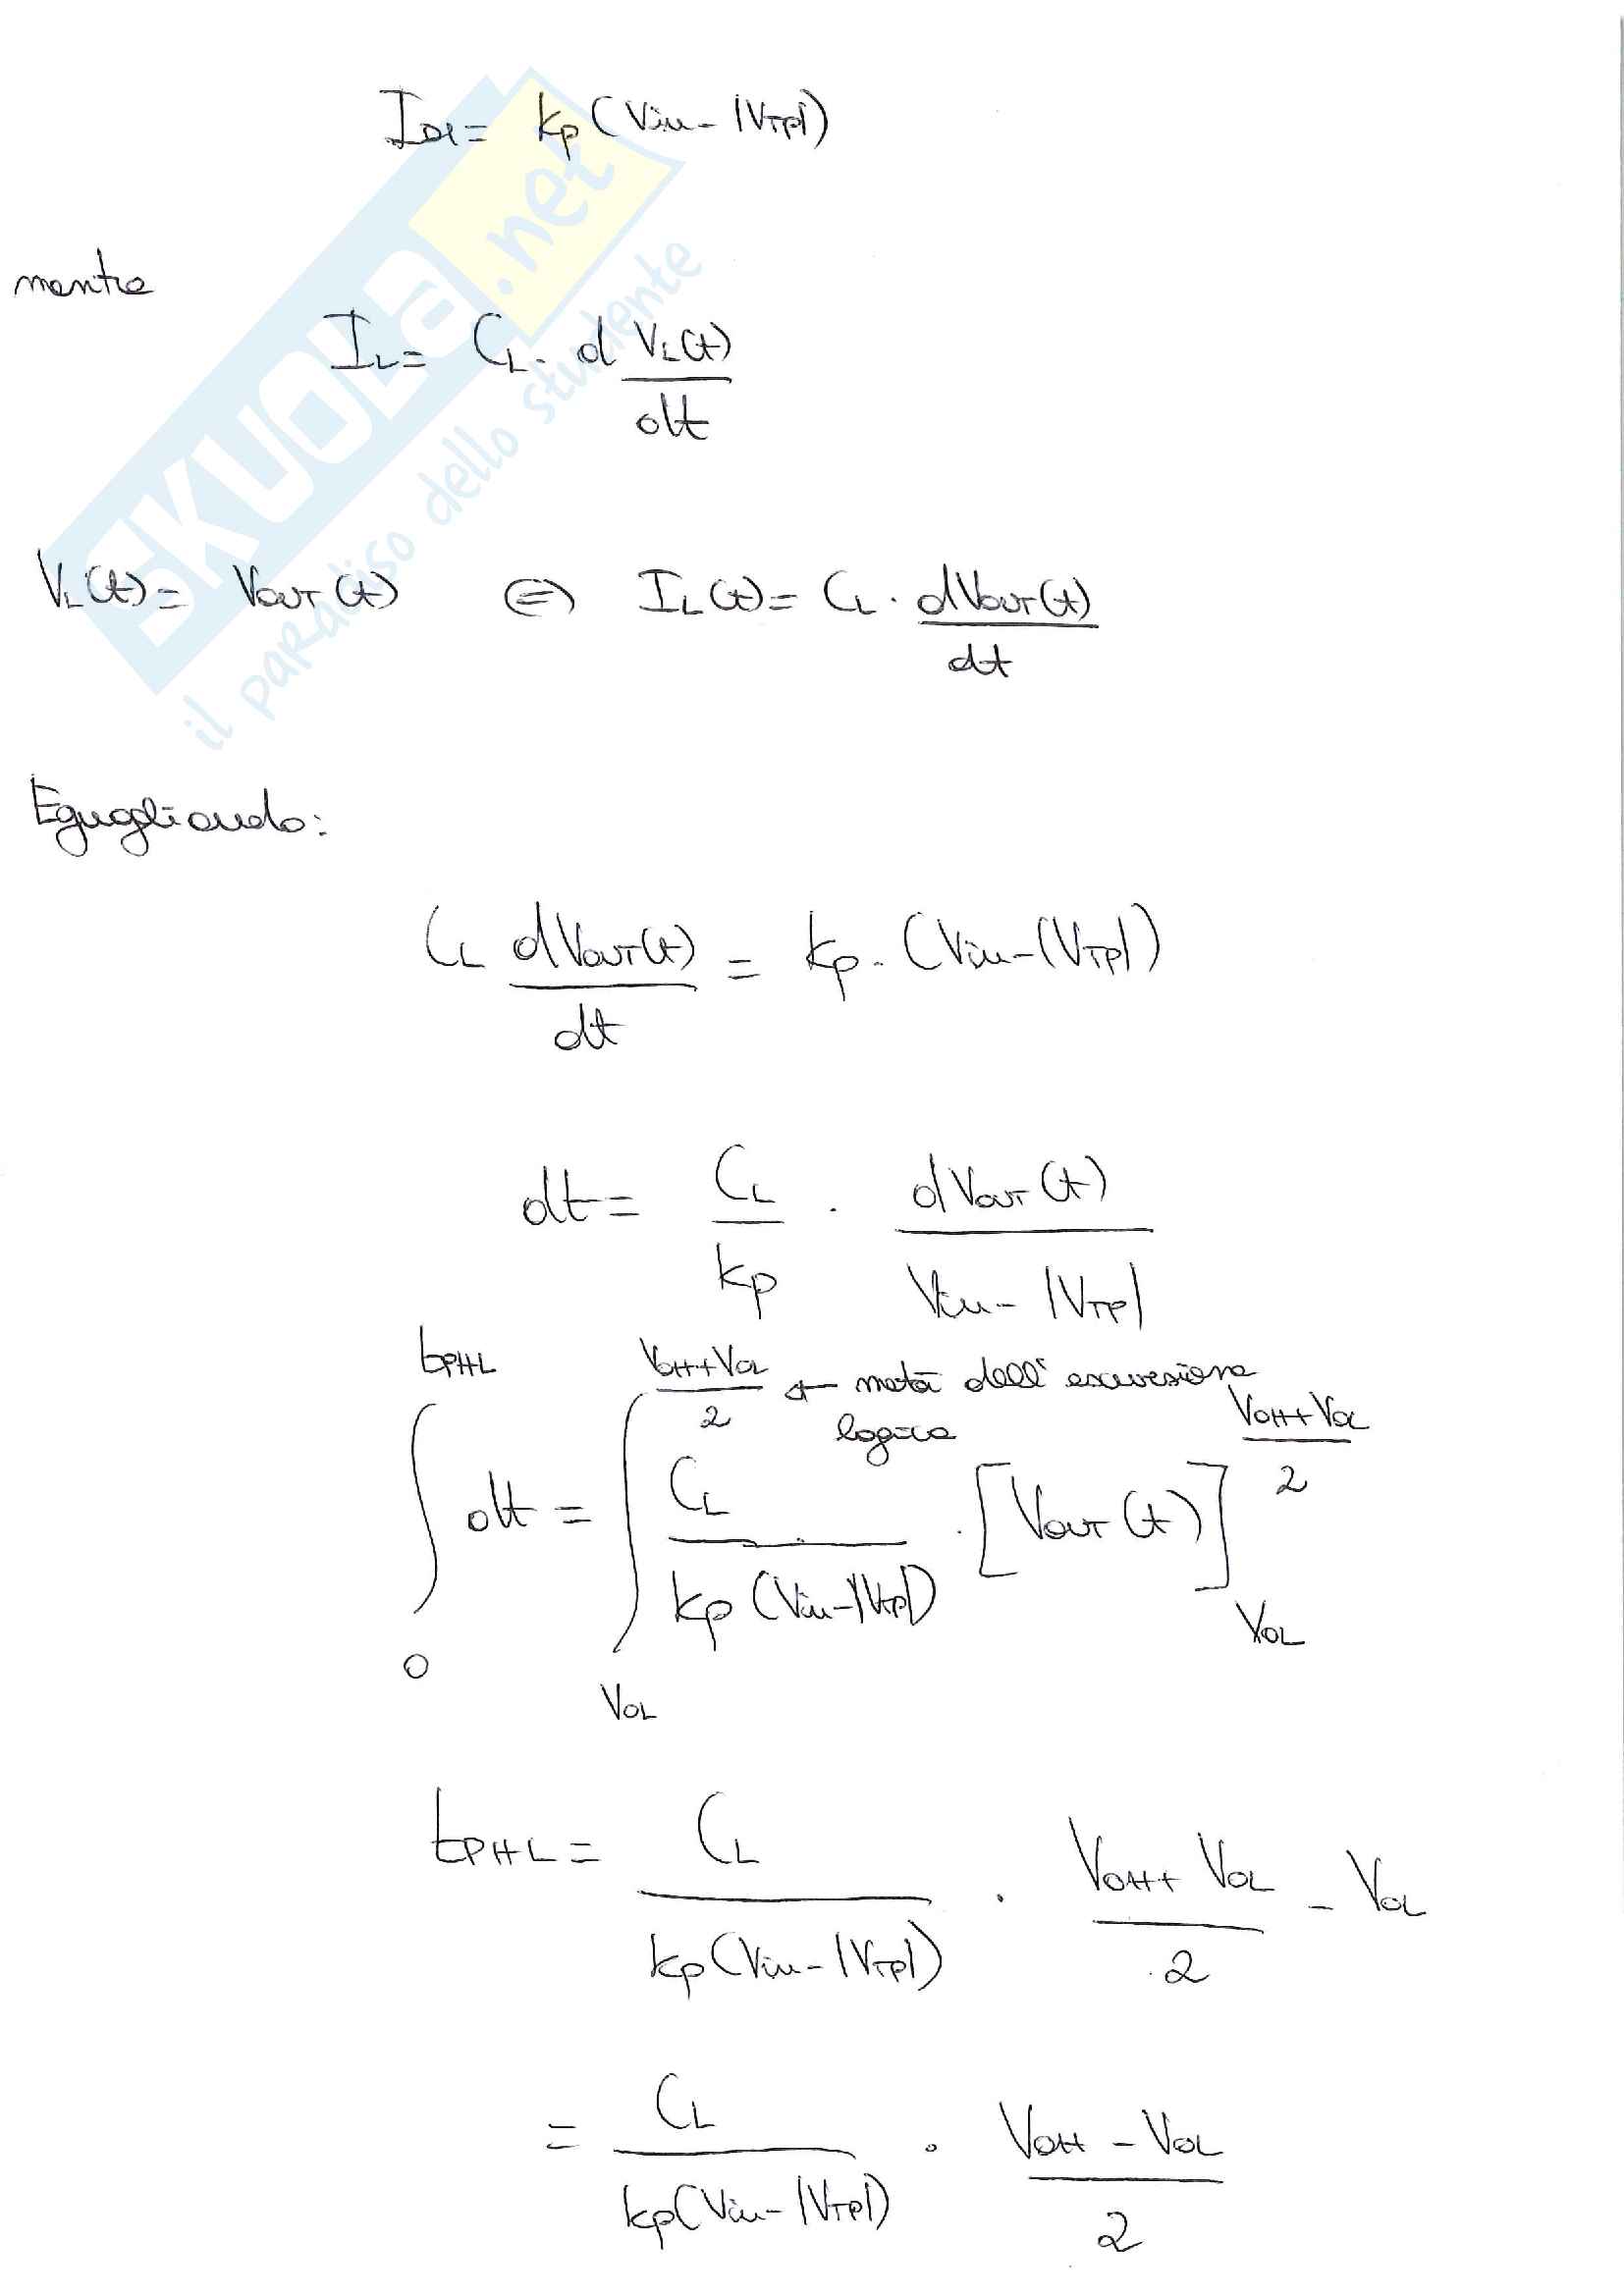 I_D1 = kp (Vin - |VTP|)
mentre
I_L = C_L · d V_L(t) / dt
V_L(t) = VOUT (t) ⇔ I_L(t) = C_L · dVOUT(t) / dt
Eguagliando:
C_L dVOUT(t) / dt = kp · (Vin - |VTP|)
dt = C_L / kp · dVOUT (t) / Vin - |VTP|
∫_0^tPHL dt = ∫_VOL^(VOH + VOL / 2) C_L / kp (Vin - |VTP|) · [VOUT (t)]_VOL^(VOH + VOL / 2)
← metà dell'escursione
logica
tPHL = C_L / kp (Vin - |VTP|) · VOH + VOL / 2 - VOL
= C_L / kp (Vin - |VTP|) · VOH - VOL / 2
SKUOLA.net
il paradiso dello studente